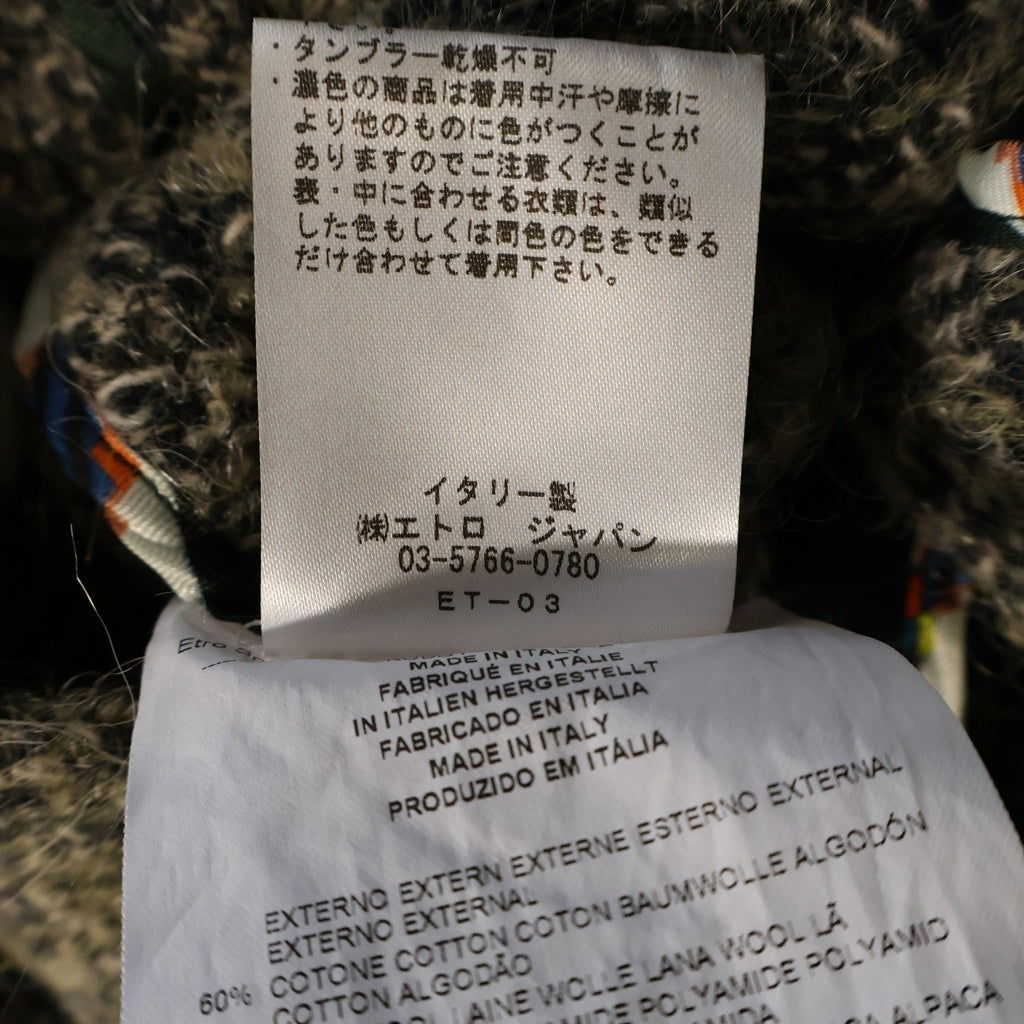 ・タンブラー乾燥不可
・濃色の商品は着用中汗や摩擦に
より他のものに色がつくことが
ありますのでご注意ください。
表・中に合わせる衣類は、類似
した色もしくは同色の色をできる
だけ合わせて着用下さい。
イタリー製
㈱エトロ ジャパン
03-5766-0780
ET-03
Etro
MADE IN ITALY
FABRIQUÉ EN ITALIE
IN ITALIEN HERGESTELLT
FABRICADO EN ITALIA
MADE IN ITALY
PRODUZIDO EM ITÁLIA
EXTERNO EXTERN EXTERNE ESTERNO EXTERNAL
EXTERNO EXTERNAL
60% COTONE COTTON COTON BAUMWOLLE ALGODÓN
COTTON ALGODÃO
LAINE WOLLE LANA WOOL LÃ
POLYAMIDE POLYAMID
ALPACA